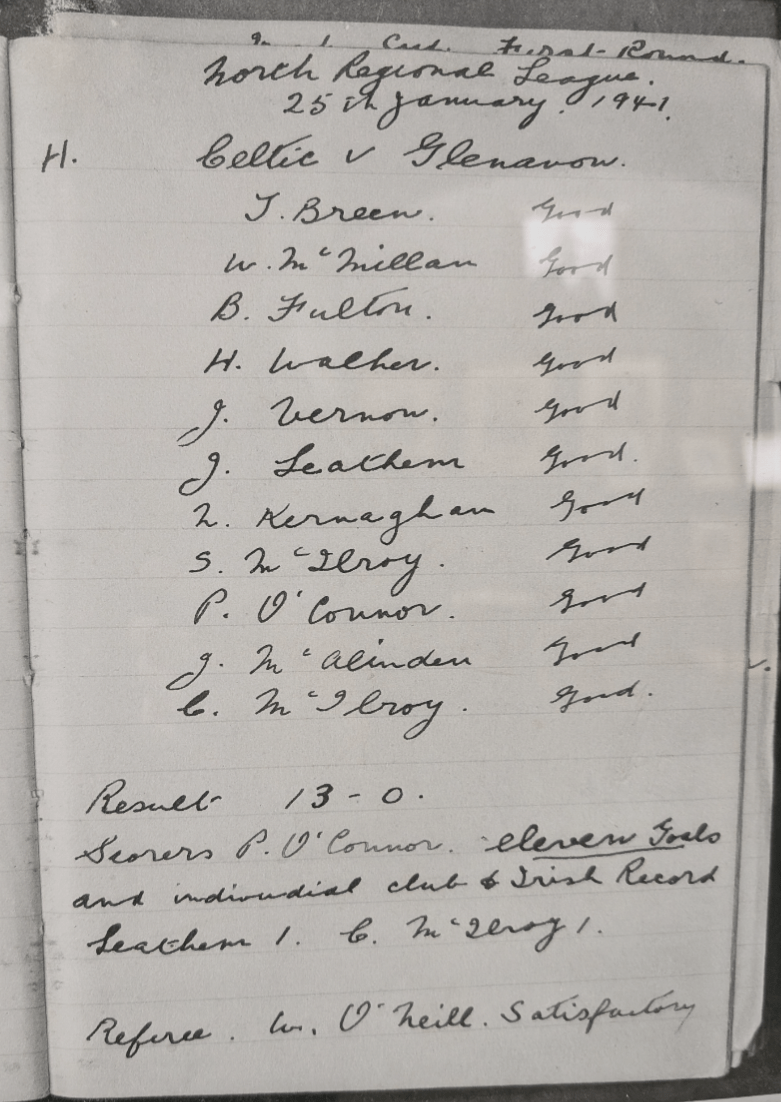 Cup. First-Round.
North Regional League.
25th January. 1941.
H. Celtic v Glenavon.
T. Breen. Good
W. McMillan Good
B. Fulton. Good
H. Walker. Good
J. Vernon. Good
J. Leathem Good.
N. Kernaghan Good
S. McIlroy. Good
P. O'Connor. Good
J. McAlinden Good
C. McIlroy. Good.
Result 13-0.
Scorers P. O'Connor. eleven Goals
and indivudial club & Irish Record
Leathem 1. C. McIlroy 1.
Referee. W. O'Neill. Satisfactory